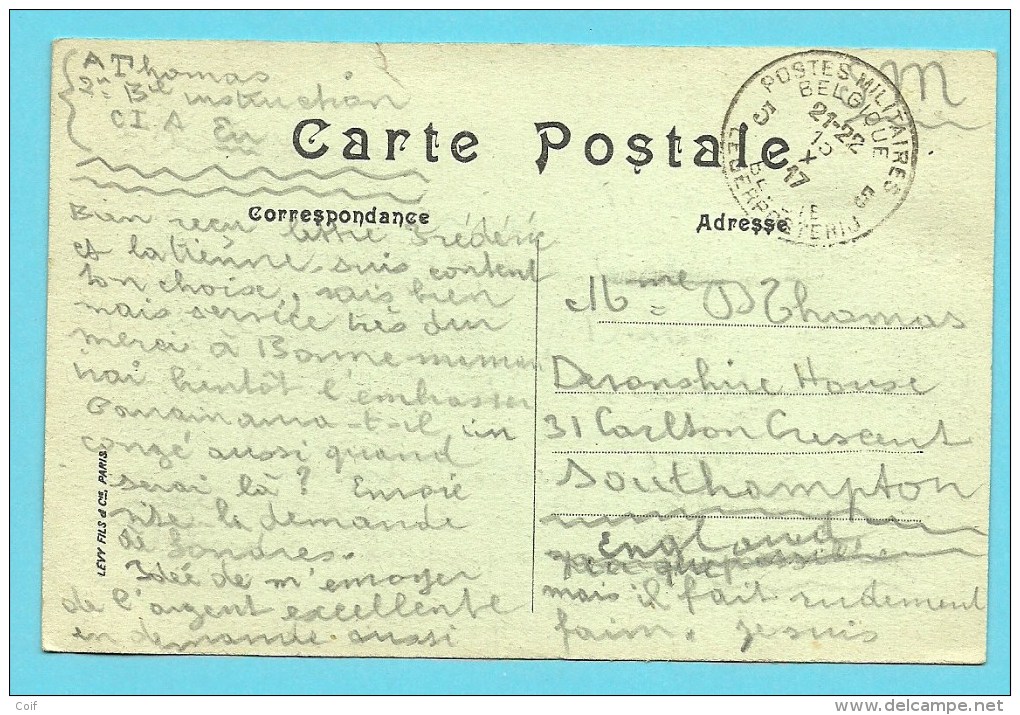 A Thomas
2me Bie instruction
C.I.A Eu
Carte Postale
POSTES MILITAIRES
BELGIQUE
5 5
21-22
15
X
17
LEGERPOSTERIJ
Correspondance
Adresse
Bien reçu lettre Frédéric
et la tienne. suis content
ton choise, sais bien
mais service très dur
merci à Bonne-maman
irai bientôt l'embrasser
aura-t-il un
congé aussi quand
serai là? Envoie
vite la demande
de Londres.
Idée de m'envoyer
de l'argent excellente
en demande aussi
Mme Thomas
Devonshire House
31 Carlton Crescent
Southampton
England
mais il fait rudement
faim. je suis
LEVY FILS & Cie, PARIS.
Coif
delcampe.net